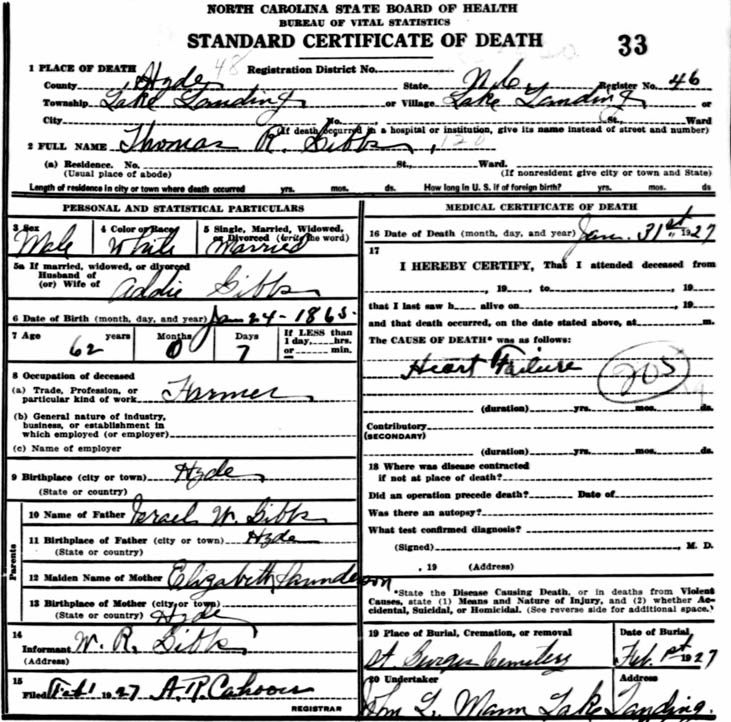 NORTH CAROLINA STATE BOARD OF HEALTH
BUREAU OF VITAL STATISTICS
STANDARD CERTIFICATE OF DEATH 33
1 PLACE OF DEATH 48 Registration District No.
County Hyde State N.C. Register No. 46
Township Lake Landing or Village Lake Landing or
City No. St., Ward
(If death occurred in a hospital or institution, give its name instead of street and number)
2 FULL NAME Thomas R. Gibbs, 120
(a) Residence. No. St., Ward.
(Usual place of abode) (If nonresident give city or town and State)
Length of residence in city or town where death occurred yrs. mos. ds. How long in U. S. if of foreign birth? yrs. mos. ds.
PERSONAL AND STATISTICAL PARTICULARS
3 Sex 4 Color or Race 5 Single, Married, Widowed,
or Divorced (write the word)
Male White Married
5a If married, widowed, or divorced
Husband of
(or) Wife of Addie Gibbs
6 Date of Birth (month, day, and year) Jan 24-1865.
7 Age years Months Days If LESS than
1 day, hrs.
or min.
62 0 7
8 Occupation of deceased
(a) Trade, Profession, or
particular kind of work Farmer
(b) General nature of industry,
business, or establishment in
which employed (or employer)
(c) Name of employer
9 Birthplace (city or town) Hyde
(State or country)
Parents
10 Name of Father Israel W. Gibbs
11 Birthplace of Father (city or town) Hyde
(State or country)
12 Maiden Name of Mother Elizabeth Saunderson
13 Birthplace of Mother (city or town)
(State or country) Hyde
14
Informant W. R. Gibbs
(Address)
15
Filed Feb 1 1927 A.P. Cahoon
REGISTRAR
MEDICAL CERTIFICATE OF DEATH
16 Date of Death (month, day, and year) Jan. 31st 1927
17
I HEREBY CERTIFY, That I attended deceased from
, 19 , to , 19
that I last saw h alive on , 19
and that death occurred, on the date stated above, at m.
The CAUSE OF DEATH* was as follows:
Heart Failure 205
(duration) yrs. mos. ds.
Contributory
(SECONDARY)
(duration) yrs. mos. ds.
18 Where was disease contracted
if not at place of death?
Did an operation precede death? Date of
Was there an autopsy?
What test confirmed diagnosis?
(Signed) , M. D.
, 19 (Address)
*State the Disease Causing Death, or in deaths from Violent
Causes, state (1) Means and Nature of Injury, and (2) whether Ac-
cidental, Suicidal, or Homicidal. (See reverse side for additional space.)
19 Place of Burial, Cremation, or removal Date of Burial
St. Georges Cemetery Feb. 1st 1927
20 Undertaker Address
L. Mann Lake Landing.